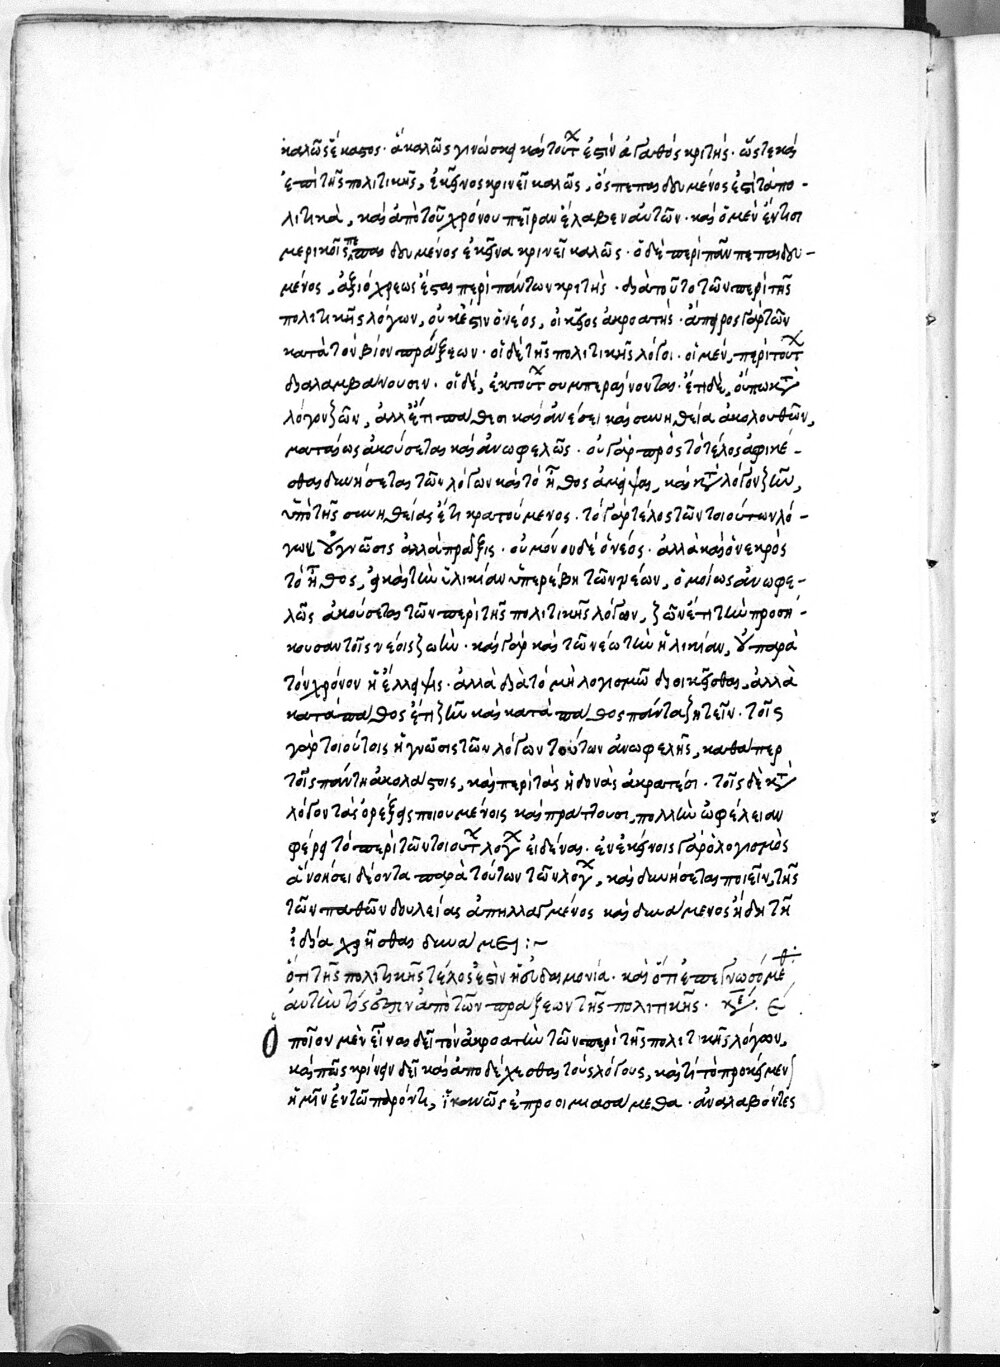 καλῶς ἕκαστος. ἃ καλῶς γινώσκει καὶ τούτων ἐστὶν ἀγαθὸς κριτής. ὥστε καὶ
ἐπὶ τῆς πολιτικῆς, ἐκεῖνος κρινεῖ καλῶς, ὃς πεπαιδευμένος ἐστὶ τὰ πο-
λιτικὰ, καὶ ἀπὸ τοῦ χρόνου πεῖραν ἔλαβεν αὐτῶν. καὶ ὁ μὲν ἔν τισι
μερικοῖς πεπαιδευμένος ἐκεῖνα κρινεῖ καλῶς. ὁ δὲ περὶ πᾶν πεπαιδευ-
μένος, ἀξιόχρεως ἔσται περὶ πάντων κριτής. διὰ τοῦτο τῶν περὶ τῆς
πολιτικῆς λόγων, οὐκ ἔστιν ὁ νέος, οἰκεῖος ἀκροατής. ἄπειρος γὰρ τῶν
κατὰ τὸν βίον πράξεων. οἱ δὲ τῆς πολιτικῆς λόγοι. οἱ μὲν, περὶ τούτων
διαλαμβάνουσιν. οἱ δὲ, ἐκ τούτων συμπεραίνονται. ἔτι δὲ, οὔπω κατὰ
λόγον ζῶν, ἀλλ' ἔτι πάθεσι καὶ ἀνέσει καὶ συνηθεία ἀκολουθῶν,
ματαίως ἀκούσεται καὶ ἀνωφελῶς. οὐ γὰρ πρὸς τὸ τέλος ἀφικέ-
σθαι δυνήσεται τῶν λόγων καὶ τὸ ἦθος ἀμεῖψαι, καὶ κατὰ λόγον ζῆν,
ὑπὸ τῆς συνηθείας ἔτι κρατούμενος. τὸ γὰρ τέλος τῶν τοιούτων λό-
γων οὐ γνῶσις ἀλλὰ πρᾶξις. οὐ μόνον δὲ ὁ νέος. ἀλλὰ καὶ ὁ νεαρὸς
τὸ ἦθος, εἰ καὶ τὴν ἡλικίαν ὑπερέβη τῶν νέων, ὁμοίως ἀνωφε-
λῶς ἀκούσεται τῶν περὶ τῆς πολιτικῆς λόγων, ζῶν ἔτι τὴν προσή-
κουσαν τοῖς νέοις ζωὴν. καὶ γὰρ καὶ τῶν νέων τὴν ἡλικίαν, οὐ παρὰ
τὸν χρόνον ἡ ἔλλειψις. ἀλλὰ διὰ τὸ μὴ λογισμῶ διοικεῖσθαι, ἀλλὰ
κατὰ πάθος ἔτι ζῆν καὶ κατὰ πάθος πάντα ζητεῖν. τοῖς
γὰρ τοιούτοις ἡ γνῶσις τῶν λόγων τούτων ἀνωφελής, καθάπερ
τοῖς πάντη ἀκολάστοις, καὶ περὶ τὰς ἡδονὰς ἀκρατέσι. τοῖς δὲ κατὰ
λόγον τὰς ὀρέξεις ποιουμένοις καὶ πράττουσι, πολλὴν ὠφέλειαν
φέρει τὸ περὶ τῶν τοιούτων λόγων εἰδέναι. ἐν ἐκείνοις γὰρ ὁ λογισμὸς
ἃ νοήσει δέοντα παρὰ τούτων τῶν λόγων, καὶ δυνήσεται ποιεῖν, τῆς
τῶν παθῶν δουλείας ἀπηλλαγμένος καὶ δυνάμενος ἤδη τῆ
ἰδία χρῆσθαι δυνάμει :~
ὅτι τῆς πολιτικῆς τέλος ἐστὶν ἡ εὐδαιμονία. καὶ ὅτι ἐπιγνωσόμεθα
αὐτὴν τίς ἐστιν ἀπὸ τῶν πράξεων τῆς πολιτικῆς. κεφ. ε
Ὁποῖον μὲν εἶναι δεῖ τὸν ἀκροατὴν τῶν περὶ τῆς πολιτικῆς λόγων,
καὶ πῶς κρίνειν δεῖ καὶ ἀποδέχεσθαι τοὺς λόγους, καὶ τί τὸ προκείμενον
ἡμῖν ἐν τῶ παρόντι, ἱκανῶς ἐπροοιμιασάμεθα. ἀναλαβόντες